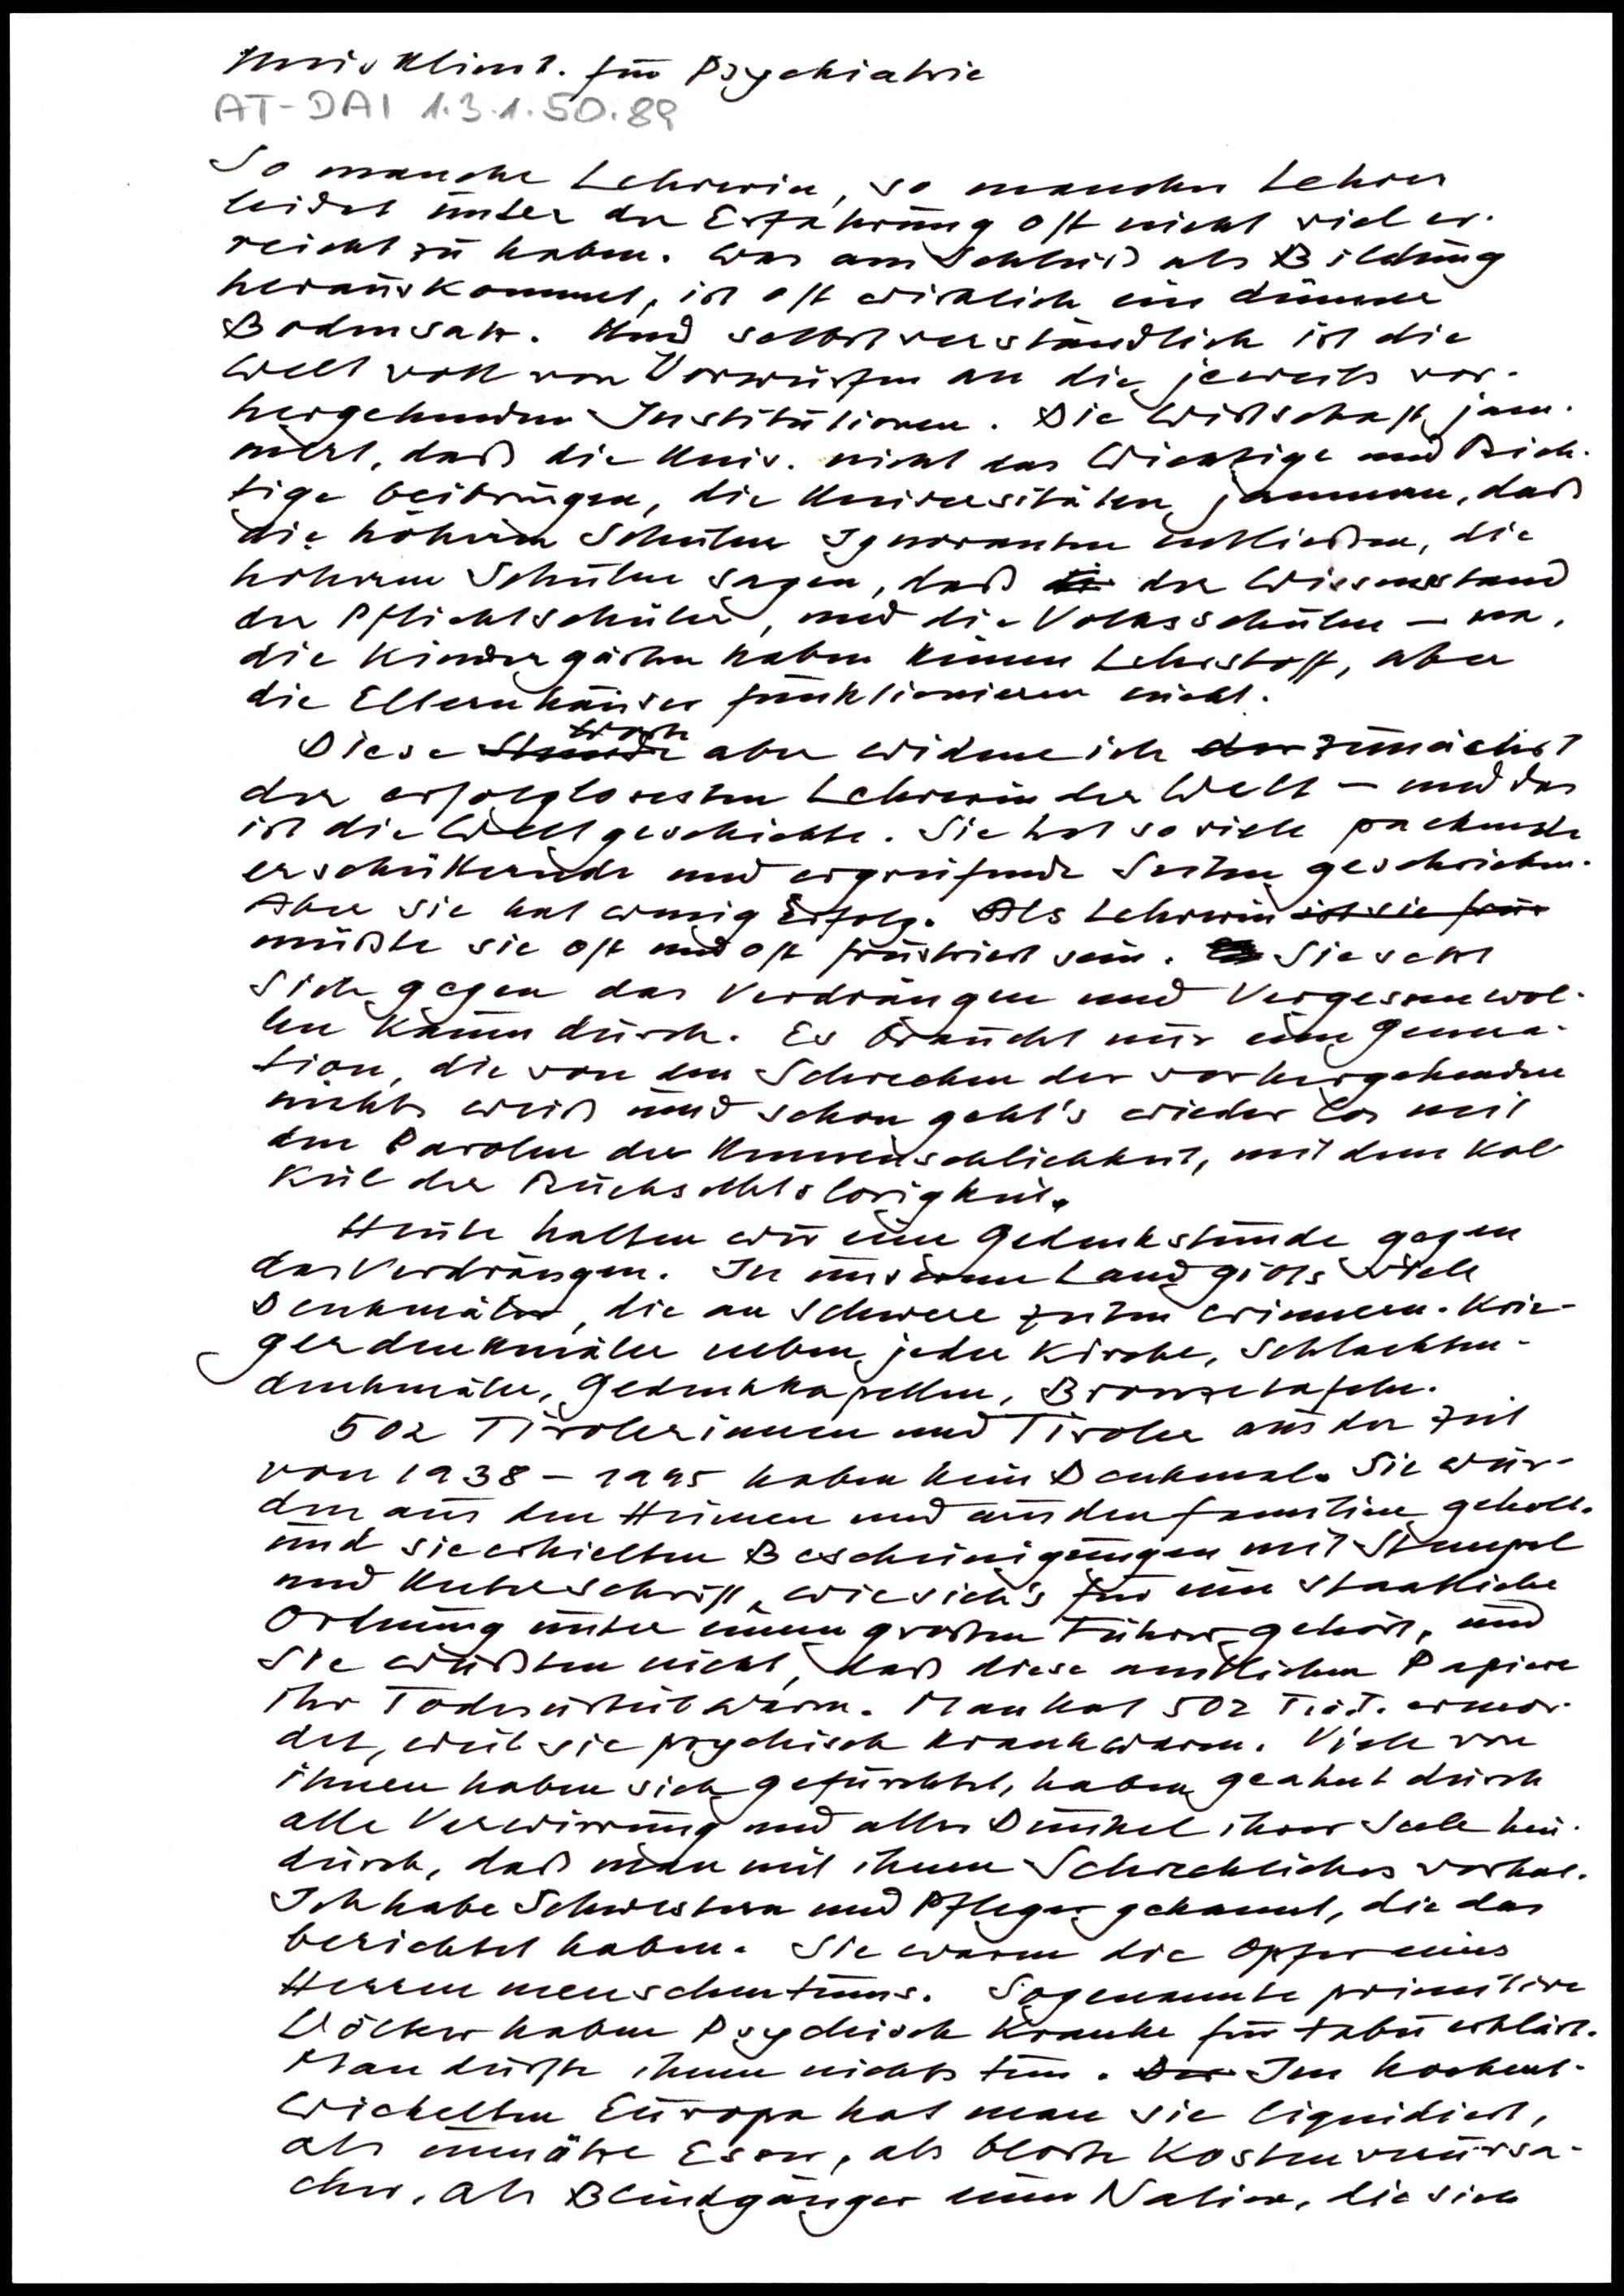 Univ Klinik. für Psychiatrie
AT-DAI 1.3.1.50.89
So manche Lehrerin, so mancher Lehrer
leidet unter der Erfahrung oft nicht viel er-
reicht zu haben. Was am Schluß als Bildung
herauskommt, ist oft wirklich ein dünner
Bodensatz. Und selbstverständlich ist die
Welt voll von Vorwürfen an die jeweils vor-
hergehenden Institutionen. Die Wirtschaft jam-
mert, daß die Univ. nicht das Wichtige und Rich-
tige beibringen, die Universitäten jammern, daß
die höheren Schulen Ignoranten entließen, die
höheren Schulen sagen, daß di der Wissensstand
der Pflichtschüler, und die Volksschulen – na,
die Kindergärten haben keinen Lehrstoff, aber
die Elternhäuser funktionieren nicht.
Worte
Diese Stunde aber widme ich der zunächst
der erfolglosesten Lehrerin der Welt – und das
ist die Weltgeschichte. Sie hat so viele packende
erschütternde und ergreifende Seiten geschrieben.
Aber sie hat wenig Erfolg. Als Lehrerin ist sie frus
müßte sie oft und oft frustriert sein. Sie setzt
sich gegen das Verdrängen und Vergessenwol-
len kaum durch. Es braucht nur eine Genera-
tion, die von den Schrecken der vorhergehenden
nichts weiß und schon geht's wieder los mit
den Parolen der Unmenschlichkeit, mit dem Kal
kül der Rücksichtslosigkeit.
Heute halten wir eine Gedenkstunde gegen
das Verdrängen. In unserem Land gibts viele
Denkmäler, die an schwere Zeiten erinnern. Krie-
gerdenkmäler neben jeder Kirche, Schlachten-
denkmäler, Gedenkkapellen, Bronzetafeln.
502 Tirolerinnen und Tiroler aus der Zeit
von 1938 – 1945 haben kein Denkmal. Sie wur-
den aus den Heimen und aus den Familien geholt.
und sie erhielten Bescheinigungen mit Stempel
und Unterschrift, wie sich's für eine staatliche
Ordnung unter einem großen Führer gehört, und
sie wußten nicht, daß diese amtlichen Papiere
ihr Todesurteil waren. Man hat 502 T.u.T. ermor-
det, weil sie psychisch krank waren. Viele von
ihnen haben sich gefürchtet, haben geahnt durch
alle Verwirrung und alles Dunkel ihrer Seele hin-
durch, daß man mit ihnen Schreckliches vorhat.
Ich habe Schwestern und Pfleger gekannt, die das
berichtet haben. Sie waren die Opfer eines
Herrenmenschentums. Sogenannte primitive
Völker haben Psychisch Kranke für tabu erklärt.
Man durfte ihnen nichts tun. Das Im hochent-
wickelten Europa hat man sie liquidiert,
als unnütze Esser, als bloße Kostenverursa-
cher, als Blindgänger einer Nation, die sich